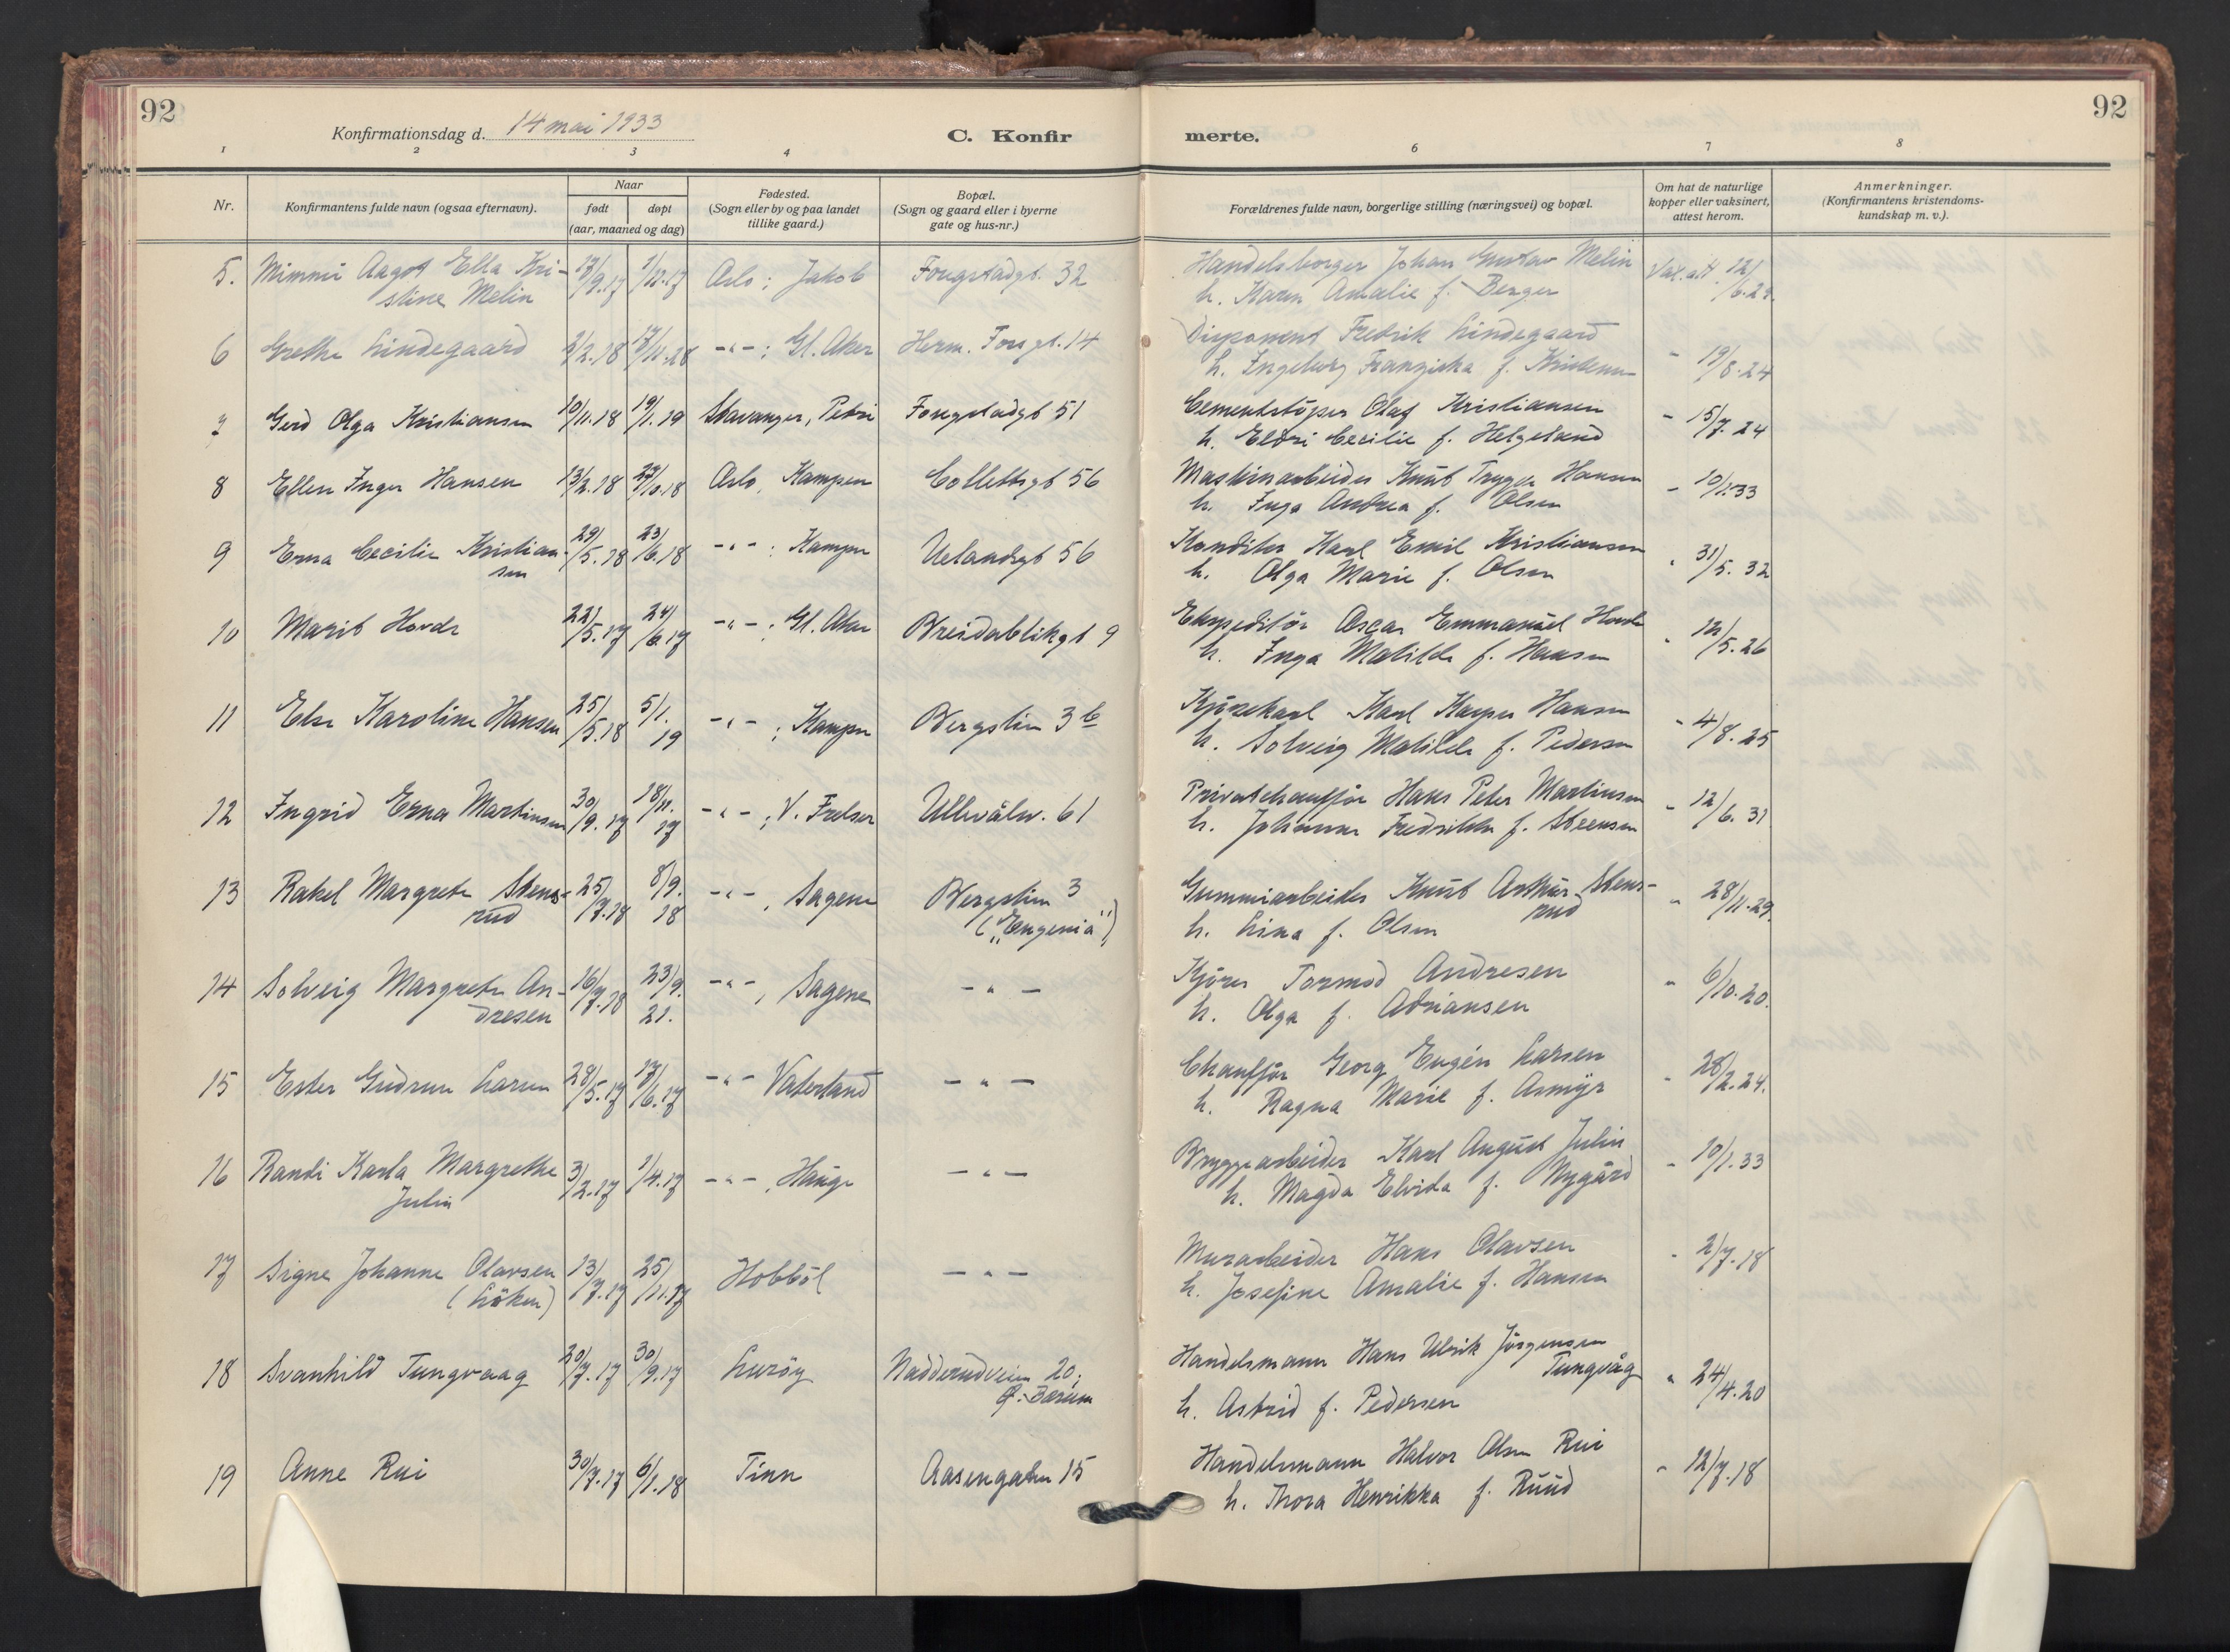 92
Konfirmationsdag d. 14 mai 1933
C. Konfir
merte.
92
1 2 3 4 6 7 8
Nr.
Konfirmantens fulde navn (ogsaa efternavn).
Naar
født døpt
(aar, maaned og dag)
Fødested.
(Sogn eller by og paa landet
tillike gaard.)
Bopæl.
(Sogn og gaard eller i byerne
gate og hus-nr.)
Forældrenes fulde navn, borgerlige stilling (næringsvei) og bopæl.
Om hat de naturlige
kopper eller vaksinert,
attest herom.
Anmerkninger.
(Konfirmantens kristendoms-
kundskap m. v.).
5. Mimmi Aagot Ella Kri- 17/9.17 1/12.17 Oslo; Jakob Fougstadgt. 32 Handelsborger Johan Gustav Melin Vax. att. 12/6.24
stine Melin h. Karen Amalie f. Berger
6 Grethe Lindegaard 2/2.18 17/11.28 -"-; Gl. Aker Herm. Fossgt. 14 Disponent Fredrik Lindegaard
h. Ingeborg Franziska f. - 19/8.24
7 Gerd Olga Kristiansen 10/11.18 19/1.19 Stavanger, Petri Fougstadgt 51 Cementstøper Olaf Kristiansen - 15/7.24
h. Eldri Cecilie f. Helgeland
8 Ellen Inger Hansen 13/2.18 27/10.18 Oslo, Kampen Collettsgt 56 Maskinarbeider Knut Trygve Hansen - 10/1.33
h. Inga Andrea f. Olsen
9 Erna Cecilie Kristian- 29/5.18 23/6.18 -"-; Kampen Uelandsgt 56 Konditor Karl Emil Kristiansen " 31/5.32
sen h. Olga Marie f. Olsen
10 Marit Hovde 22/5.17 24/6.17 -"-; Gl. Aker Breidablikgt 9 Ekspeditør Oscar Emmanuel Hovde " 12/5.26
h. Inga Matilde f. Hansen
11 Else Karoline Hansen 25/5.18 5/1.19 -"-; Kampen Bergslien 3 b Kjørekarl Karl Kasper Hansen - 4/8.25
h. Solveig Matilde f. Pedersen
12 Ingrid Erna Martinsen 30/9.17 18/11.17 -"-; V. Frelser Ullevålsv. 61 Privatchauffør Hans Peter Martinsen - 12/6.31
h. Johanne Fredrikke f. Steensen
13 Rakel Margrete Stens- 25/7.18 8/9.18 -"-, Sagene Bergslien 3 Gummiarbeider Knut Arthur Stens- " 28/11.29.
rud („Eugenia") rud
h. Lina f. Olsen
14 Solveig Margrete An- 16/7.18 23/9.21. -"-, Sagene -"- Kjører Tormod Andresen " 6/10.20.
dresen h. Olga f. Adriansen
15 Ester Gudrun Larsen 28/5.17 17/6.17 -"- Vaterland -"- Chauffør Georg Eugén Larsen " 28/2.24.
h. Ragna Marie f. Asmyr
16 Randi Karla Margrethe 3/2.17 1/4.17 -"-, Hauge -"- Bryggearbeider Karl August Julin - 10/1.33
Julin h. Magda Elvida f. Nygård
17 Signe Johanne Olavsen 13/7.17 25/11.17 Hobböl -"- Murarbeider Hans Olavsen - 2/7.18
(Löken) h. Josefine Amalie f. Hansen
18 Svanhild Tungvaag 20/7.17 30/9.17 Luröy Nadderudveien 20; Handelsmann Hans Ulrik Jörgensen
Ö. Bærum Tungvåg " 24/4.20
h. Astrid f. Pedersen
19 Anne Rui 30/7.17 6/1.18 Tinn Aasengaten 15 Handelsmann Halvor Olsen Rui - 12/7.18
h. Thora Henrikka f. Ruud